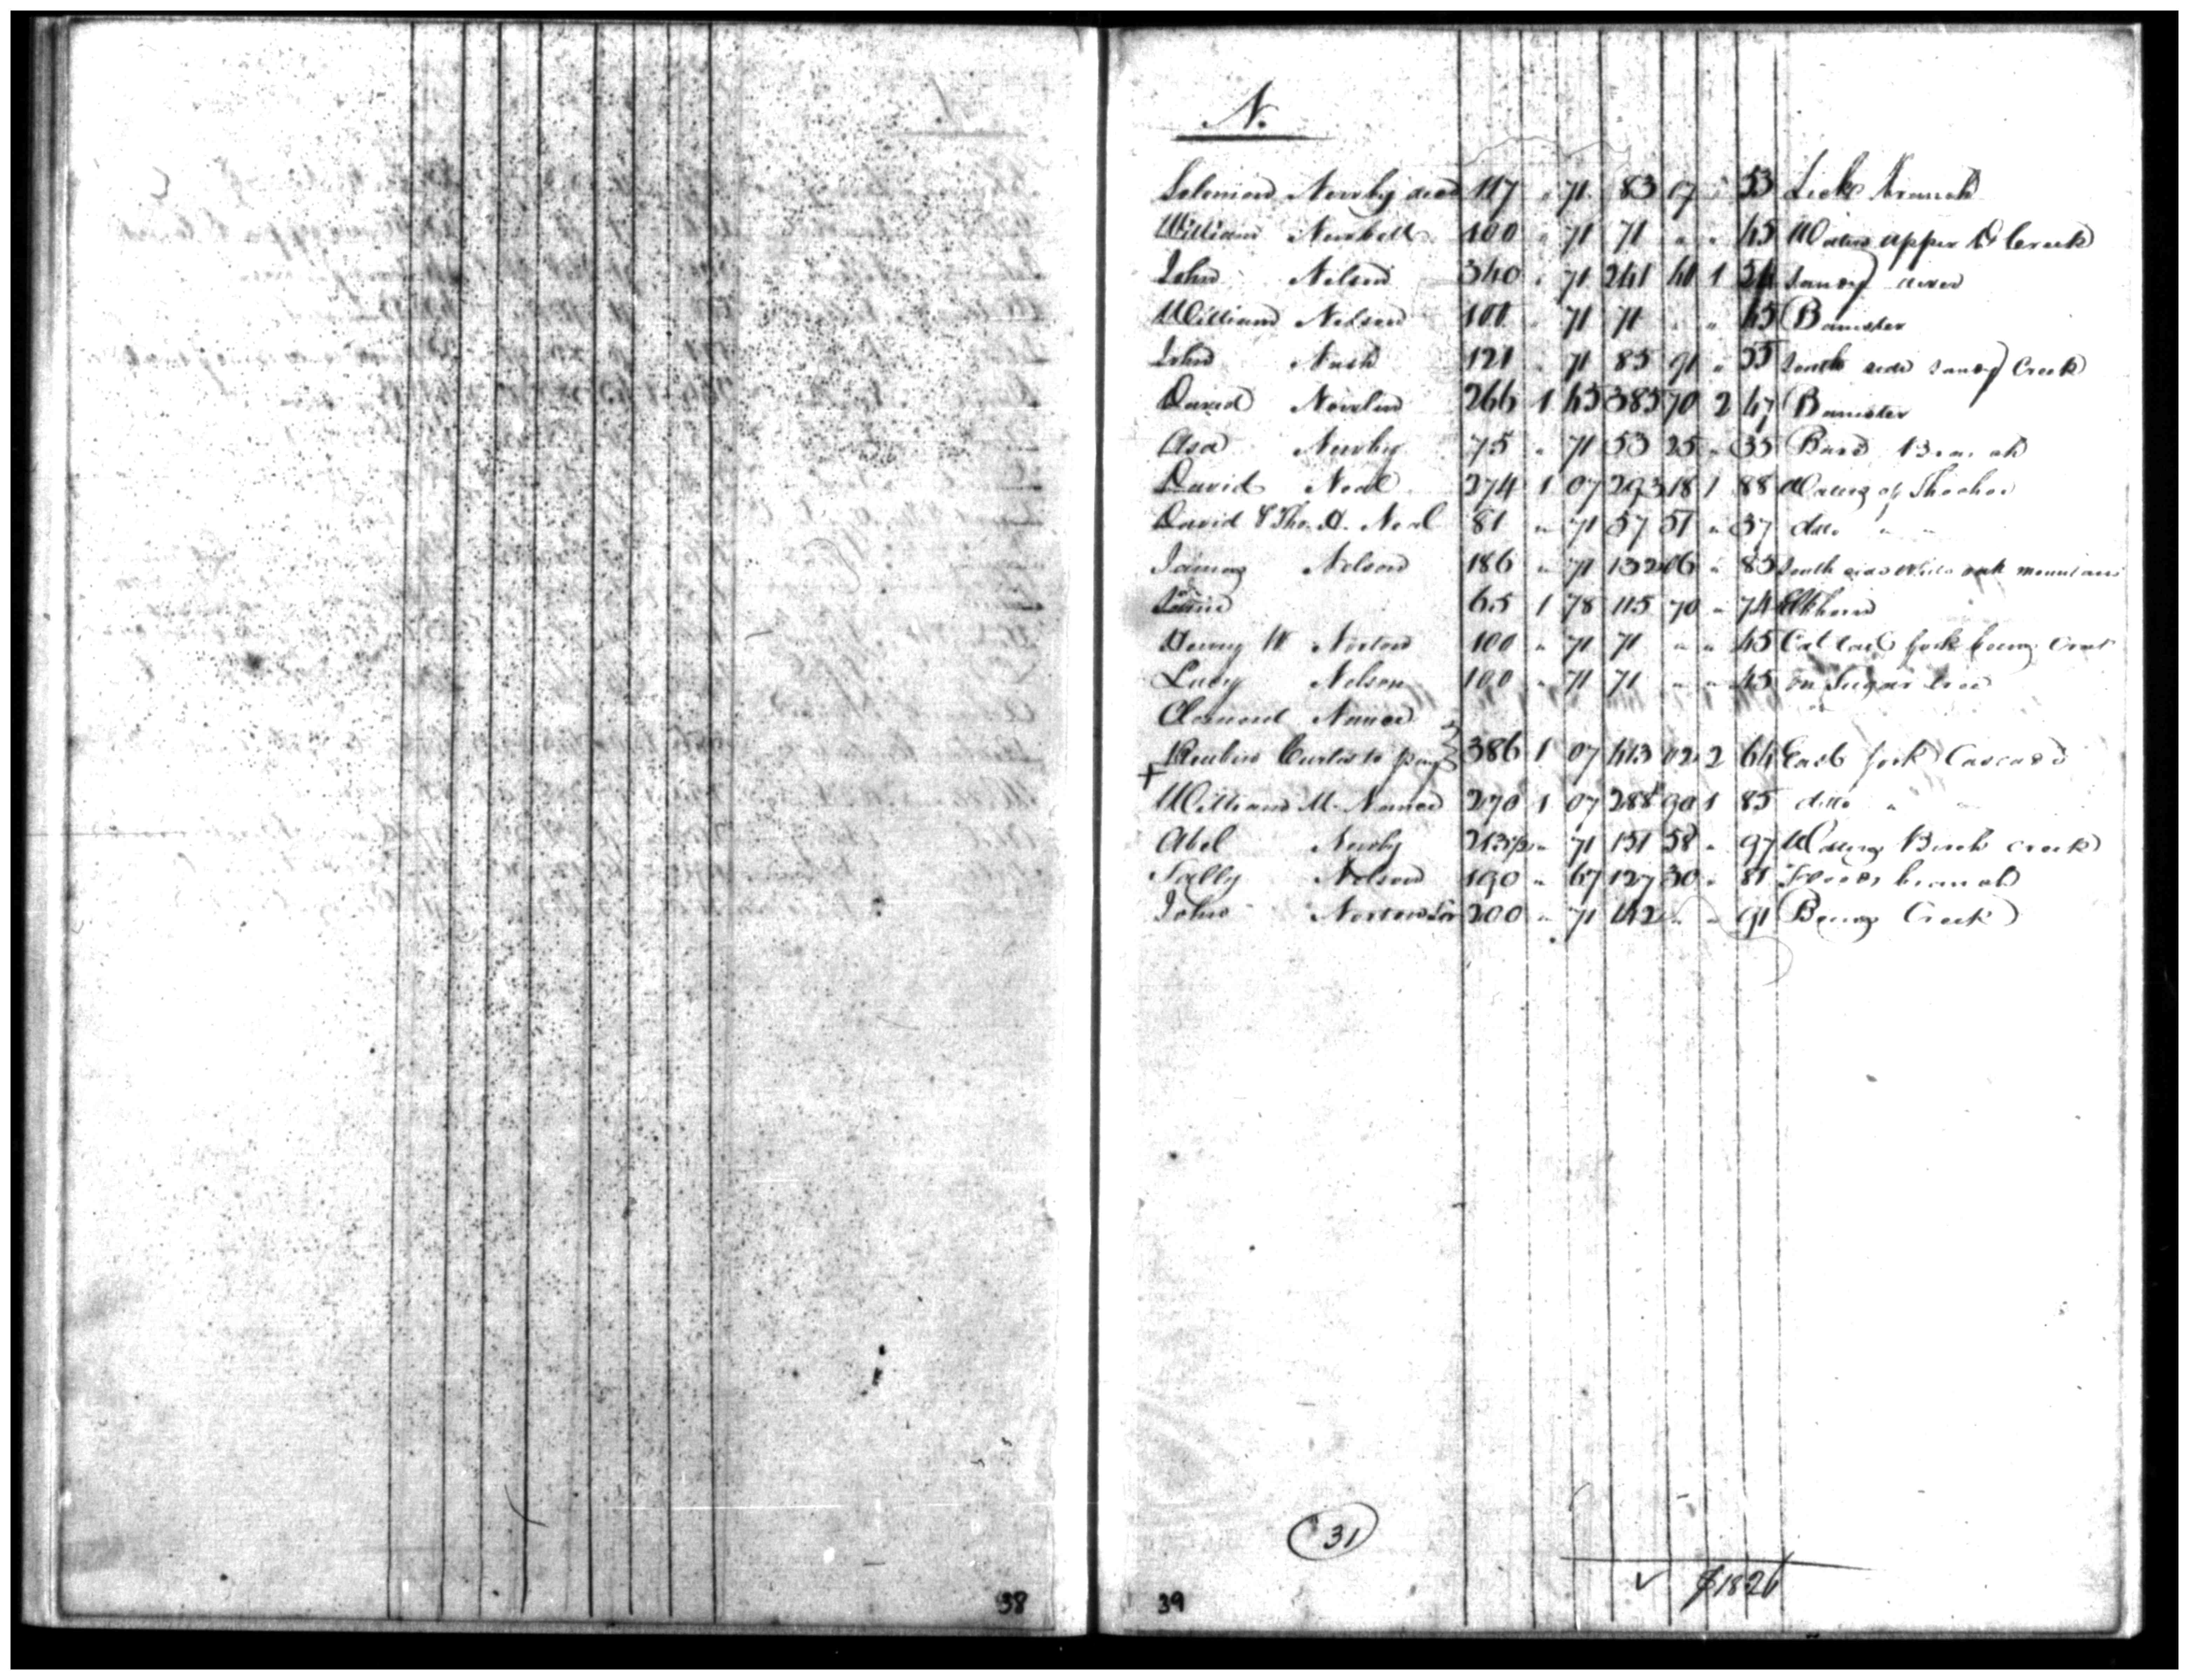 N.
Solomon Newby decd 117 " 71 83 07 " 53 Lick branch
William Newbill 100 " 71 71 " " 45 Waters upper Creek
John Nelson 340 " 71 241 40 1 54 Sandy river
William Nelson 100 " 71 71 " " 45 Banister
John Nash 121 " 71 85 91 " 55 South side Sandy Creek
David Nowlin 266 1 45 385 70 2 47 Banister
Asa Newby 75 " 71 53 25 " 35 Branch
David Neal 274 1 07 293 18 1 88 Waters of
David & Tho. D. Neal 81 " 71 57 51 " 37 ditto " "
James Nelson 186 " 71 132 06 " 85 South side White oak mountain
Same 65 1 78 115 70 " 74 Elkhorn
W Norton 100 " 71 71 " " 45 Cattail fork
Lucy Nelson 100 " 71 71 " " 45 on Sugar tree
Clement Nance
Reubin Curtis to pay 386 1 07 413 02 2 64 East fork Cascade
+
William M. Nance 270 1 07 288 90 1 85 ditto "
Abel Newby 213½ " 71 151 58 " 97 Waters Birch creek
Sally Nelson 190 " 67 127 30 " 81 branch
John Norton Sr 200 " 71 142 " " 91 Creek
31
✓ $18.26
38
39